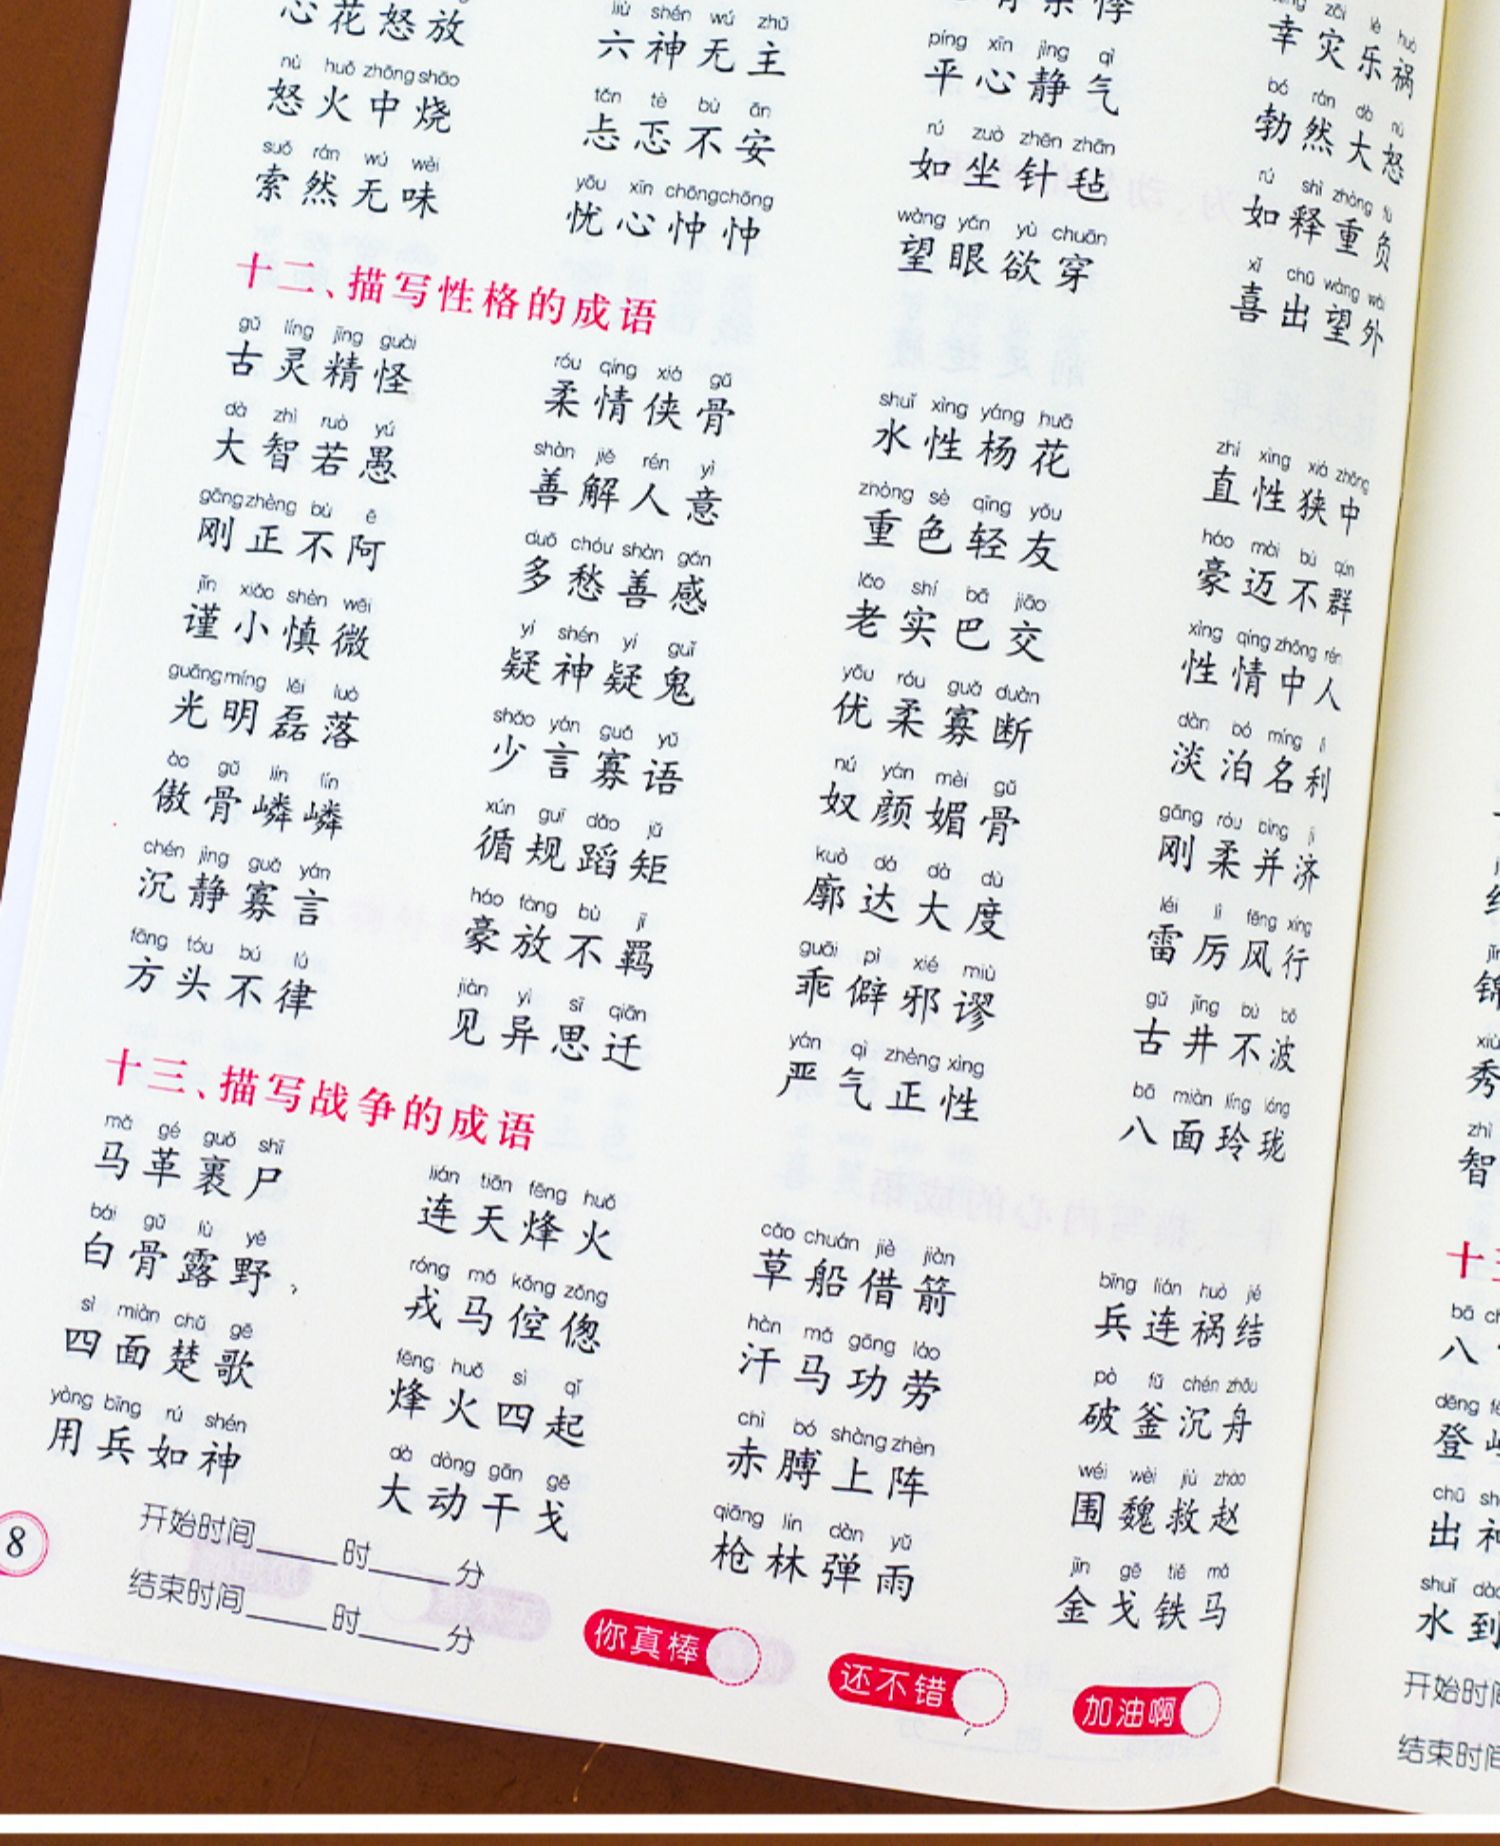 心花怒放
liù shén wú zhǔ
六神无主
píng xīn jìng qì
平心静气
zāi lè huò
幸灾乐祸
nù huǒ zhōng shāo
怒火中烧
tǎn tè bù ān
忐忑不安
rú zuò zhēn zhān
如坐针毡
bó rán dà nù
勃然大怒
suǒ rán wú wèi
索然无味
yōu xīn chōng chōng
忧心忡忡
wàng yǎn yù chuān
望眼欲穿
rú shì zhòng fù
如释重负
xǐ chū wàng wài
喜出望外
十二、描写性格的成语
gǔ líng jīng guài
古灵精怪
róu qíng xiá gǔ
柔情侠骨
shuǐ xìng yáng huā
水性杨花
zhí xìng xiá zhōng
直性狭中
dà zhì ruò yú
大智若愚
shàn jiě rén yì
善解人意
zhòng sè qīng yǒu
重色轻友
háo mài bù qún
豪迈不群
gāng zhèng bù ē
刚正不阿
duō chóu shàn gǎn
多愁善感
lǎo shí bā jiāo
老实巴交
xìng qíng zhōng rén
性情中人
jǐn xiǎo shèn wēi
谨小慎微
yí shén yí guǐ
疑神疑鬼
yōu róu guǎ duàn
优柔寡断
dàn bó míng lì
淡泊名利
guāng míng lěi luò
光明磊落
shǎo yán guǎ yǔ
少言寡语
nú yán mèi gǔ
奴颜媚骨
gāng róu bìng jì
刚柔并济
ào gǔ lín lín
傲骨嶙嶙
xún guī dǎo jǔ
循规蹈矩
kuò dá dà dù
廓达大度
léi lì fēng xíng
雷厉风行
chén jìng guǎ yán
沉静寡言
háo fàng bù jī
豪放不羁
guāi pì xié miù
乖僻邪谬
gǔ jǐng bù bō
古井不波
fāng tóu bú lǜ
方头不律
jiàn yì sī qiān
见异思迁
yán qì zhèng xìng
严气正性
bā miàn líng lóng
八面玲珑
十三、描写战争的成语
mǎ gé guǒ shī
马革裹尸
lián tiān fēng huǒ
连天烽火
cǎo chuán jiè jiàn
草船借箭
bīng lián huò jié
兵连祸结
bái gǔ lù yě
白骨露野
róng mǎ kǒng zǒng
戎马倥偬
hàn mǎ gōng láo
汗马功劳
pò fǔ chén zhōu
破釜沉舟
sì miàn chǔ gē
四面楚歌
fēng huǒ sì qǐ
烽火四起
chì bó shàng zhèn
赤膊上阵
wéi wèi jiù zhào
围魏救赵
yòng bīng rú shén
用兵如神
dà dòng gān gē
大动干戈
qiāng lín dàn yǔ
枪林弹雨
jīn gē tiě mǎ
金戈铁马
8
开始时间____时____分
结束时间____时____分
你真棒
还不错
加油啊
锦
秀
zhì
智
十
八
登
出
shuǐ
水到
开始时间
结束时间